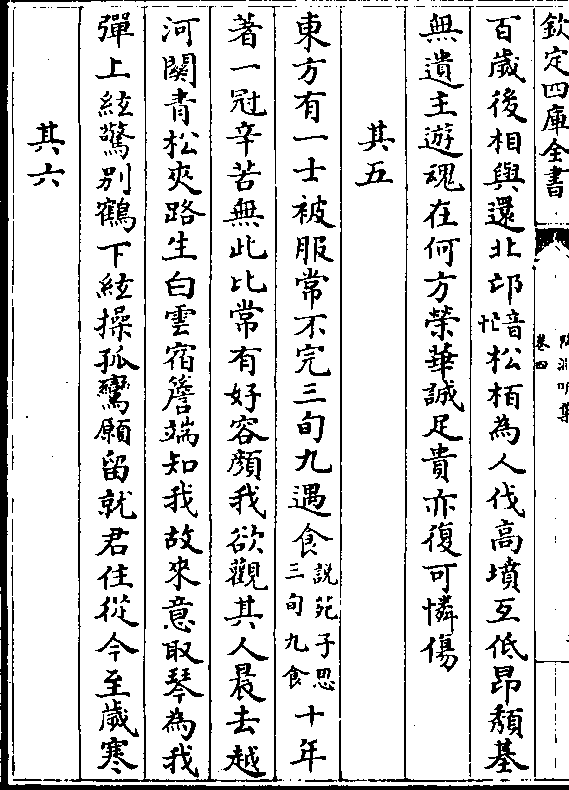 欽定四庫全書
陶淵明集
卷四
百歲後相與還北邙音忙松柏為人伐高墳互低昂頹基
無遺主遊魂在何方榮華誠足貴亦復可憐傷
其五
東方有一士被服常不完三旬九遇食說苑子思三旬九食十年
著一冠辛苦無此比常有好容顏我欲觀其人晨去越
河關青松夾路生白雲宿簷端知我故來意取琴為我
彈上絃驚別鶴下絃操孤鸞願留就君住從今至歲寒
其六